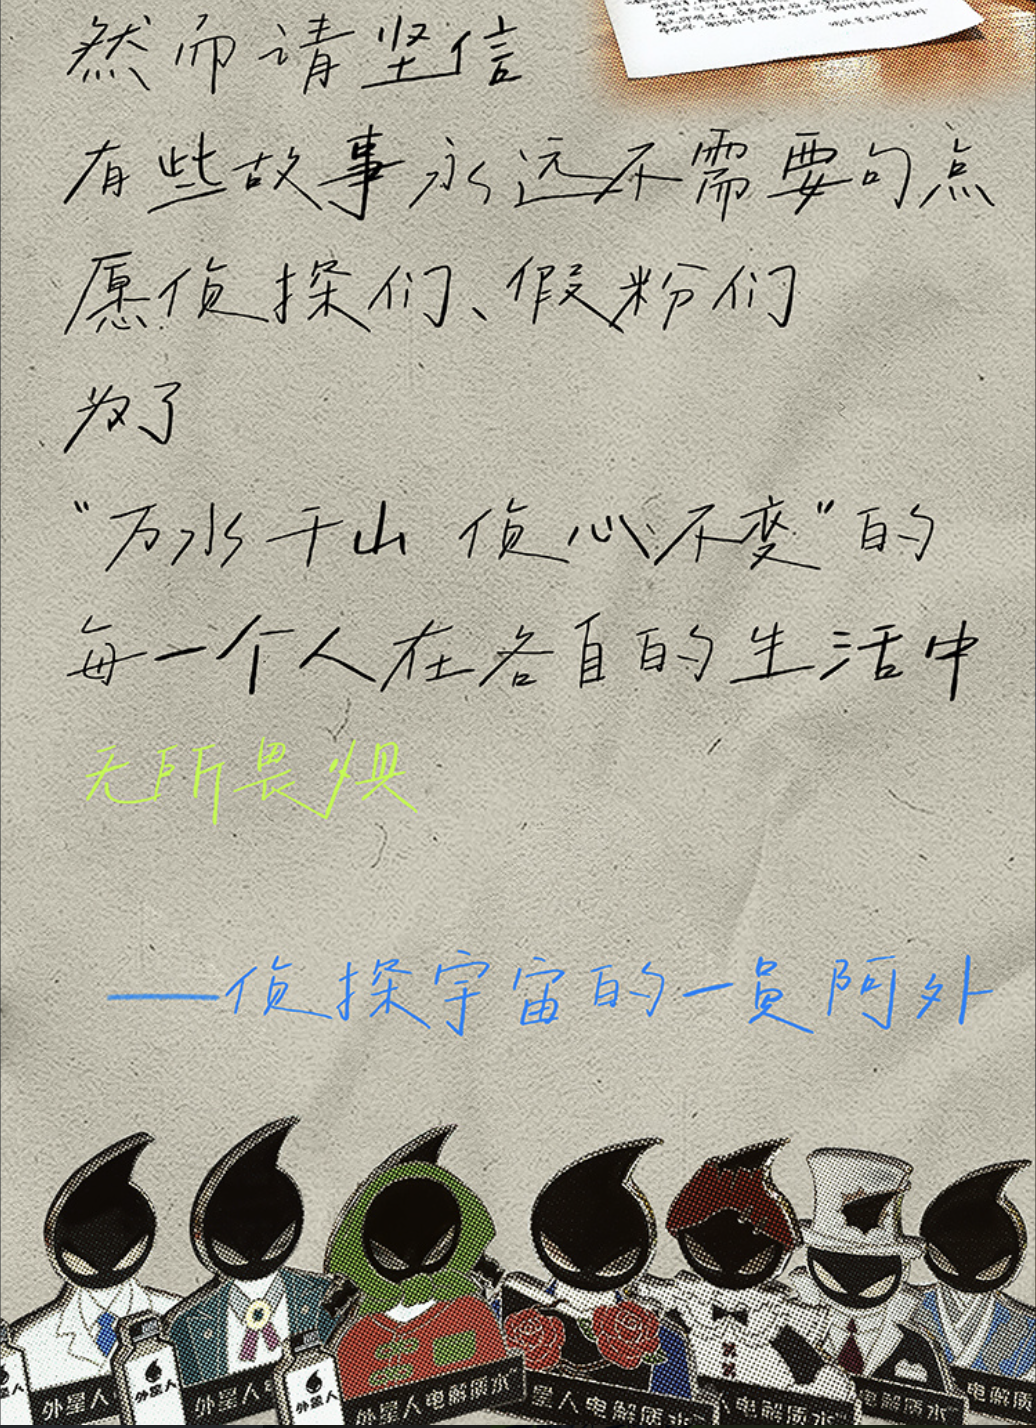 然而请坚信
有些故事永远不需要句点
愿侦探们、假粉们
为了
“万水千山 侦心不变”的
每一个人在各自的生活中
无所畏惧
——侦探宇宙的一員阿外
外星人
外星人
外星人
外星人电
外星人电解质水
星人电解质水
人电解质水
电解质水
电解质水